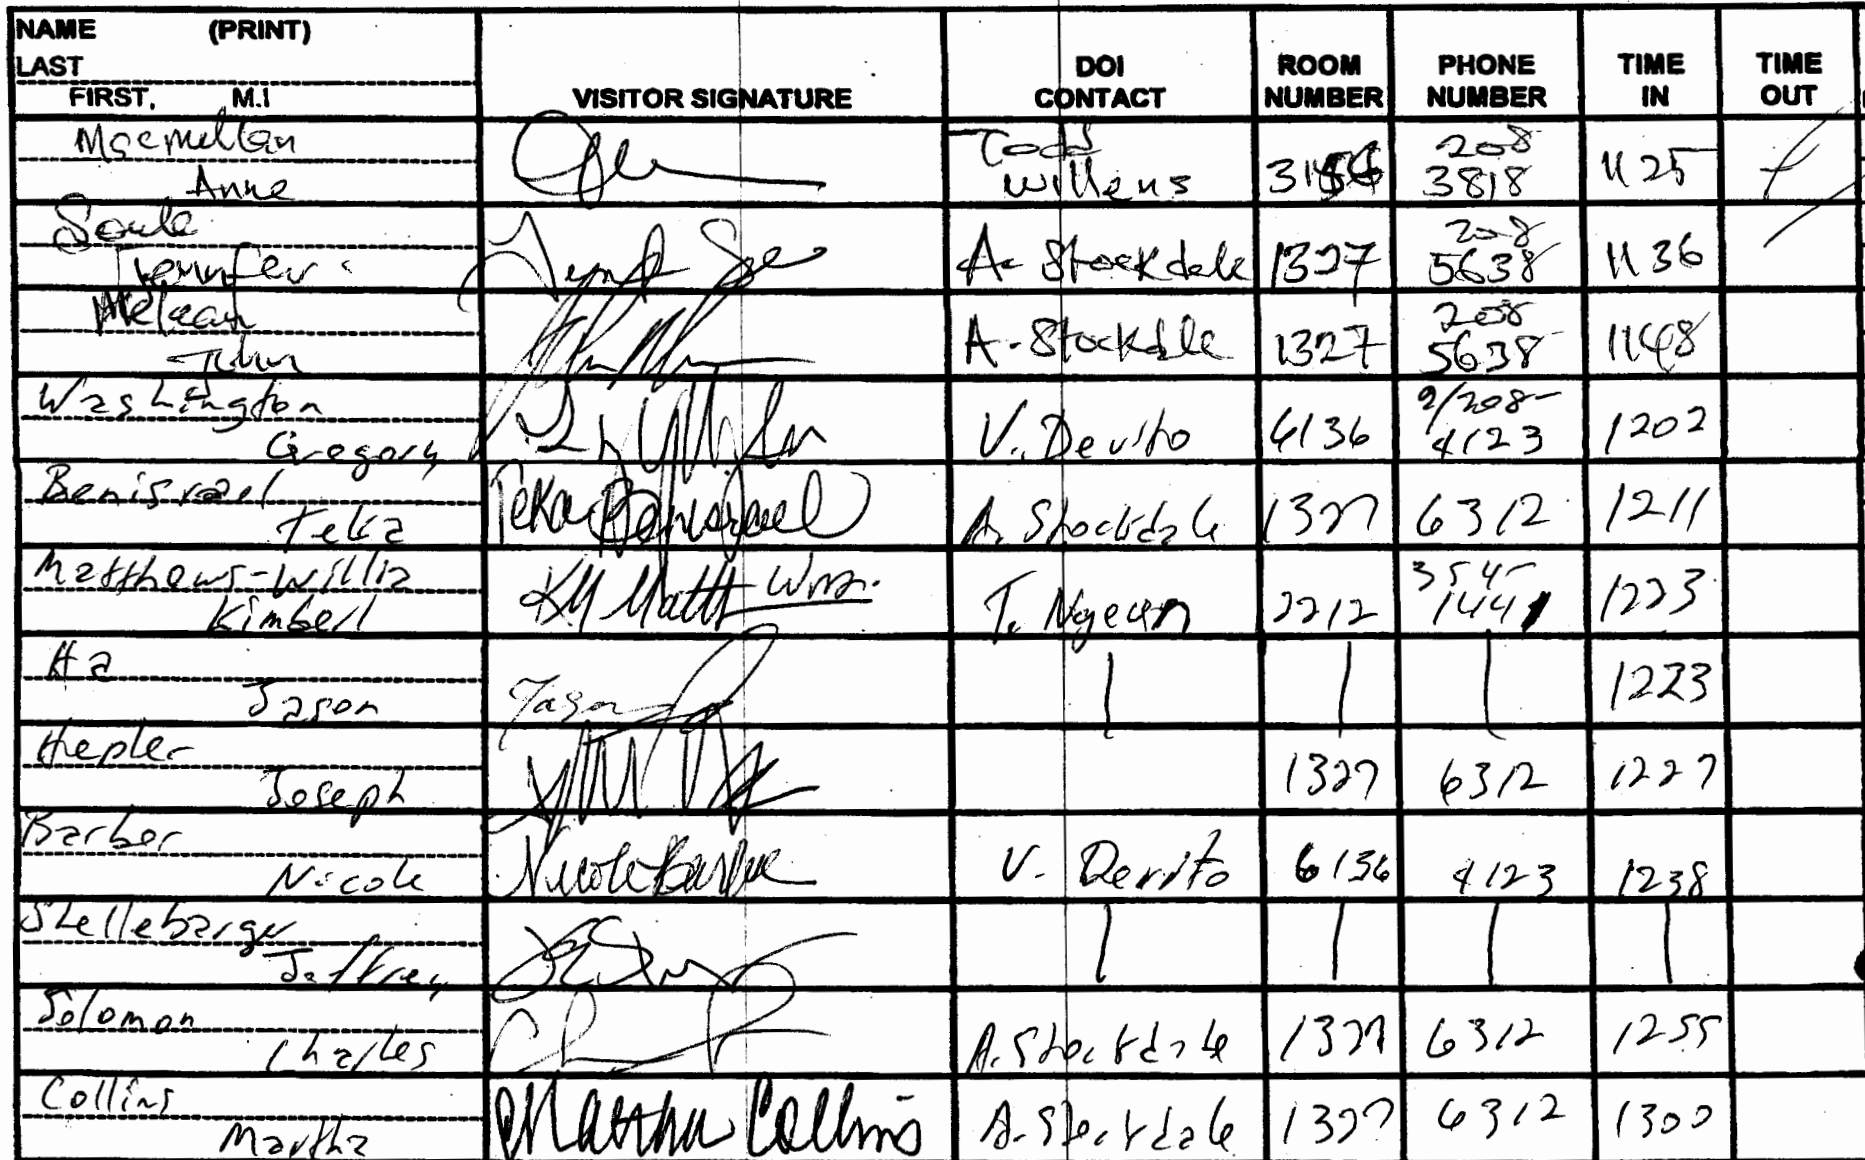 NAME (PRINT)
LAST
FIRST, M.I
VISITOR SIGNATURE
DOI
CONTACT
ROOM
NUMBER
PHONE
NUMBER
TIME
IN
TIME
OUT
Macmillan
Anne
Todd
Willens
208
3818
1125
Soule
Jennifer
A. Stockdale
1327
208
5638
1136
Mclean
John
A. Stockdale
1327
208
5638
1148
Washington
Gregory
V. Devito
6136
9/208-
4123
1202
Benisrael
Teka
Teka Benisrael
A. Stockdale
1327
6312
1211
Matthews-Willia
Kimberl
T. Nguyen
2212
354-
1441
1223
Ha
Jason
Jason
1223
Hepler
Joseph
1327
6312
1227
Barber
Nicole
Nicole Barber
V. Devito
6136
4123
1238
Shellebarger
Jeffrey
Solomon
Charles
A. Stockdale
1327
6312
1255
Collins
Martha
Martha Collins
A. Stockdale
1327
6312
1300